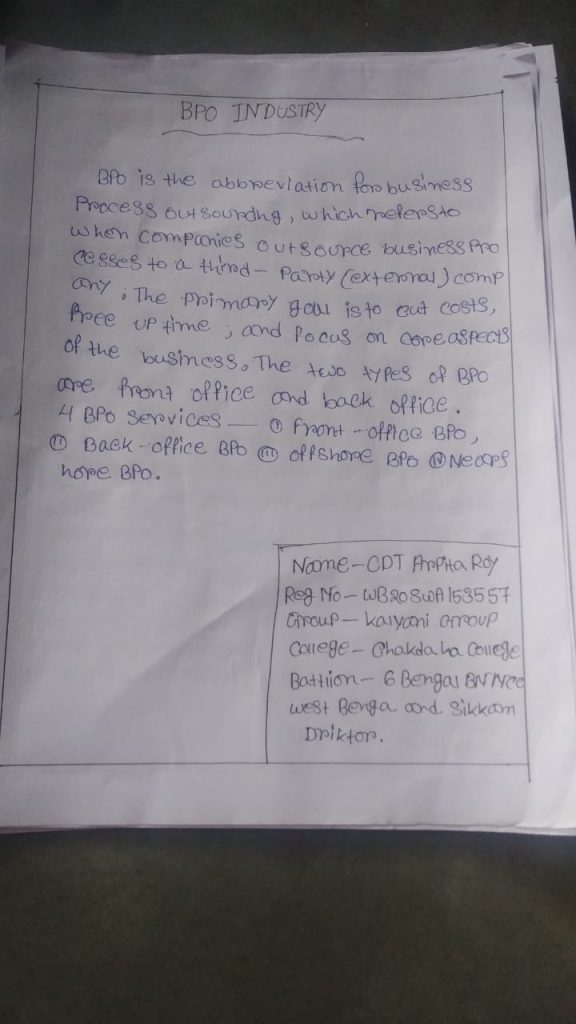 BPO INDUSTRY
BPO is the abbreviation for business
Process outsourcing, which refers to
when companies outsource business Pro
cesses to a third - Party (external) comp
any. The primary goal is to cut costs,
free up time, and focus on core aspects
of the business. The two types of BPO
are front office and back office.
4 BPO Services — (i) front - office BPO,
(ii) Back - office BPO (iii) offshore BPO (iv) Nears
hore BPO.
Name - CDT Arpita Roy
Reg No - WB20SWA153557
Group - Kalyani Group
College - Chakdaha College
Battlion - 6 Bengal BN NCC
West Benga and Sikkam
Driktor.